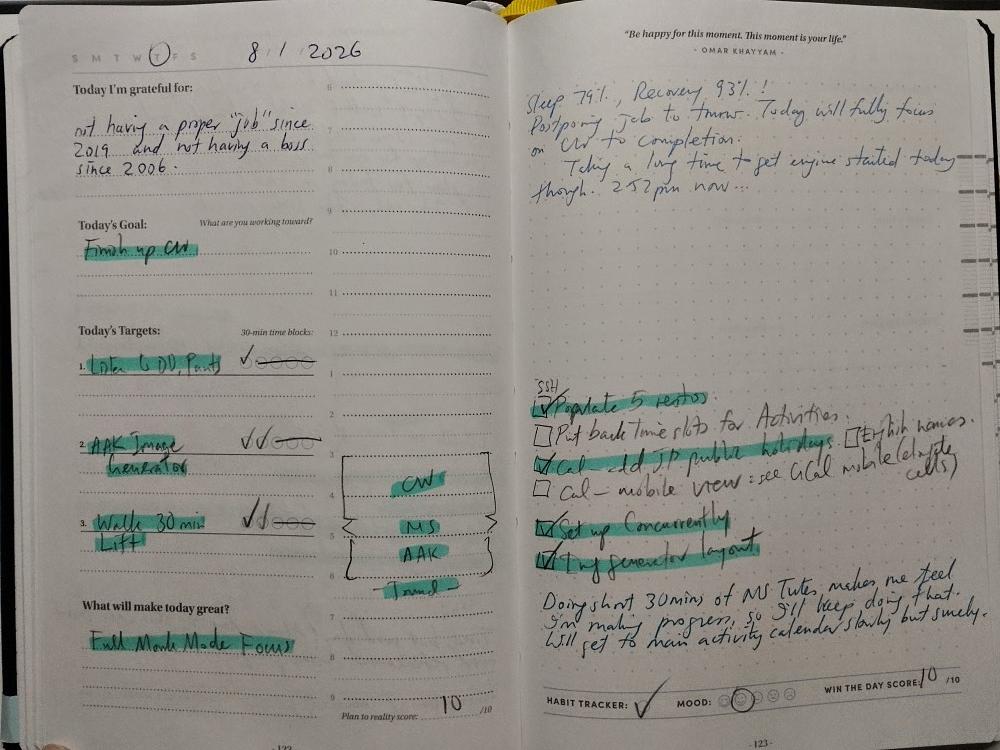 S M T W T F S
8 / 1 / 2026
Today I'm grateful for:
not having a proper "job" since
2019 and not having a boss
since 2006.
Today's Goal:
What are you working toward?
Finish up CW
Today's Targets:
30-min time blocks:
1.
2. AAK Image
Generator
3. Walk 30 min
Lift
What will make today great?
Full Monk Mode Focus
6
7
8
9
10
11
12
1
2
3
4
5
6
7
8
9
CW
MS
AAK
Travel
Plan to reality score: 10 /10
122
"Be happy for this moment. This moment is your life."
- OMAR KHAYYAM -
Sleep 79%, Recovery 93%!
Postponing job to tmrw. Today will fully focus
on CW to completion.
Taking a long time to get engine started today
though. 2:52pm now...
SSH
Populate 5 restos.
Put back time slots for Activities.
Cal - add JP public holidays. English names.
Cal - mobile view: see GCal mobile
cells)
Set up Concurrently
Img generator layout.
Doing short 30mins of MS Tutes, makes me feel
I'm making progress, so I'll keep doing that.
Will get to main activity calendar slowly but surely.
HABIT TRACKER: ✓
MOOD:
WIN THE DAY SCORE: 10 /10
-123-